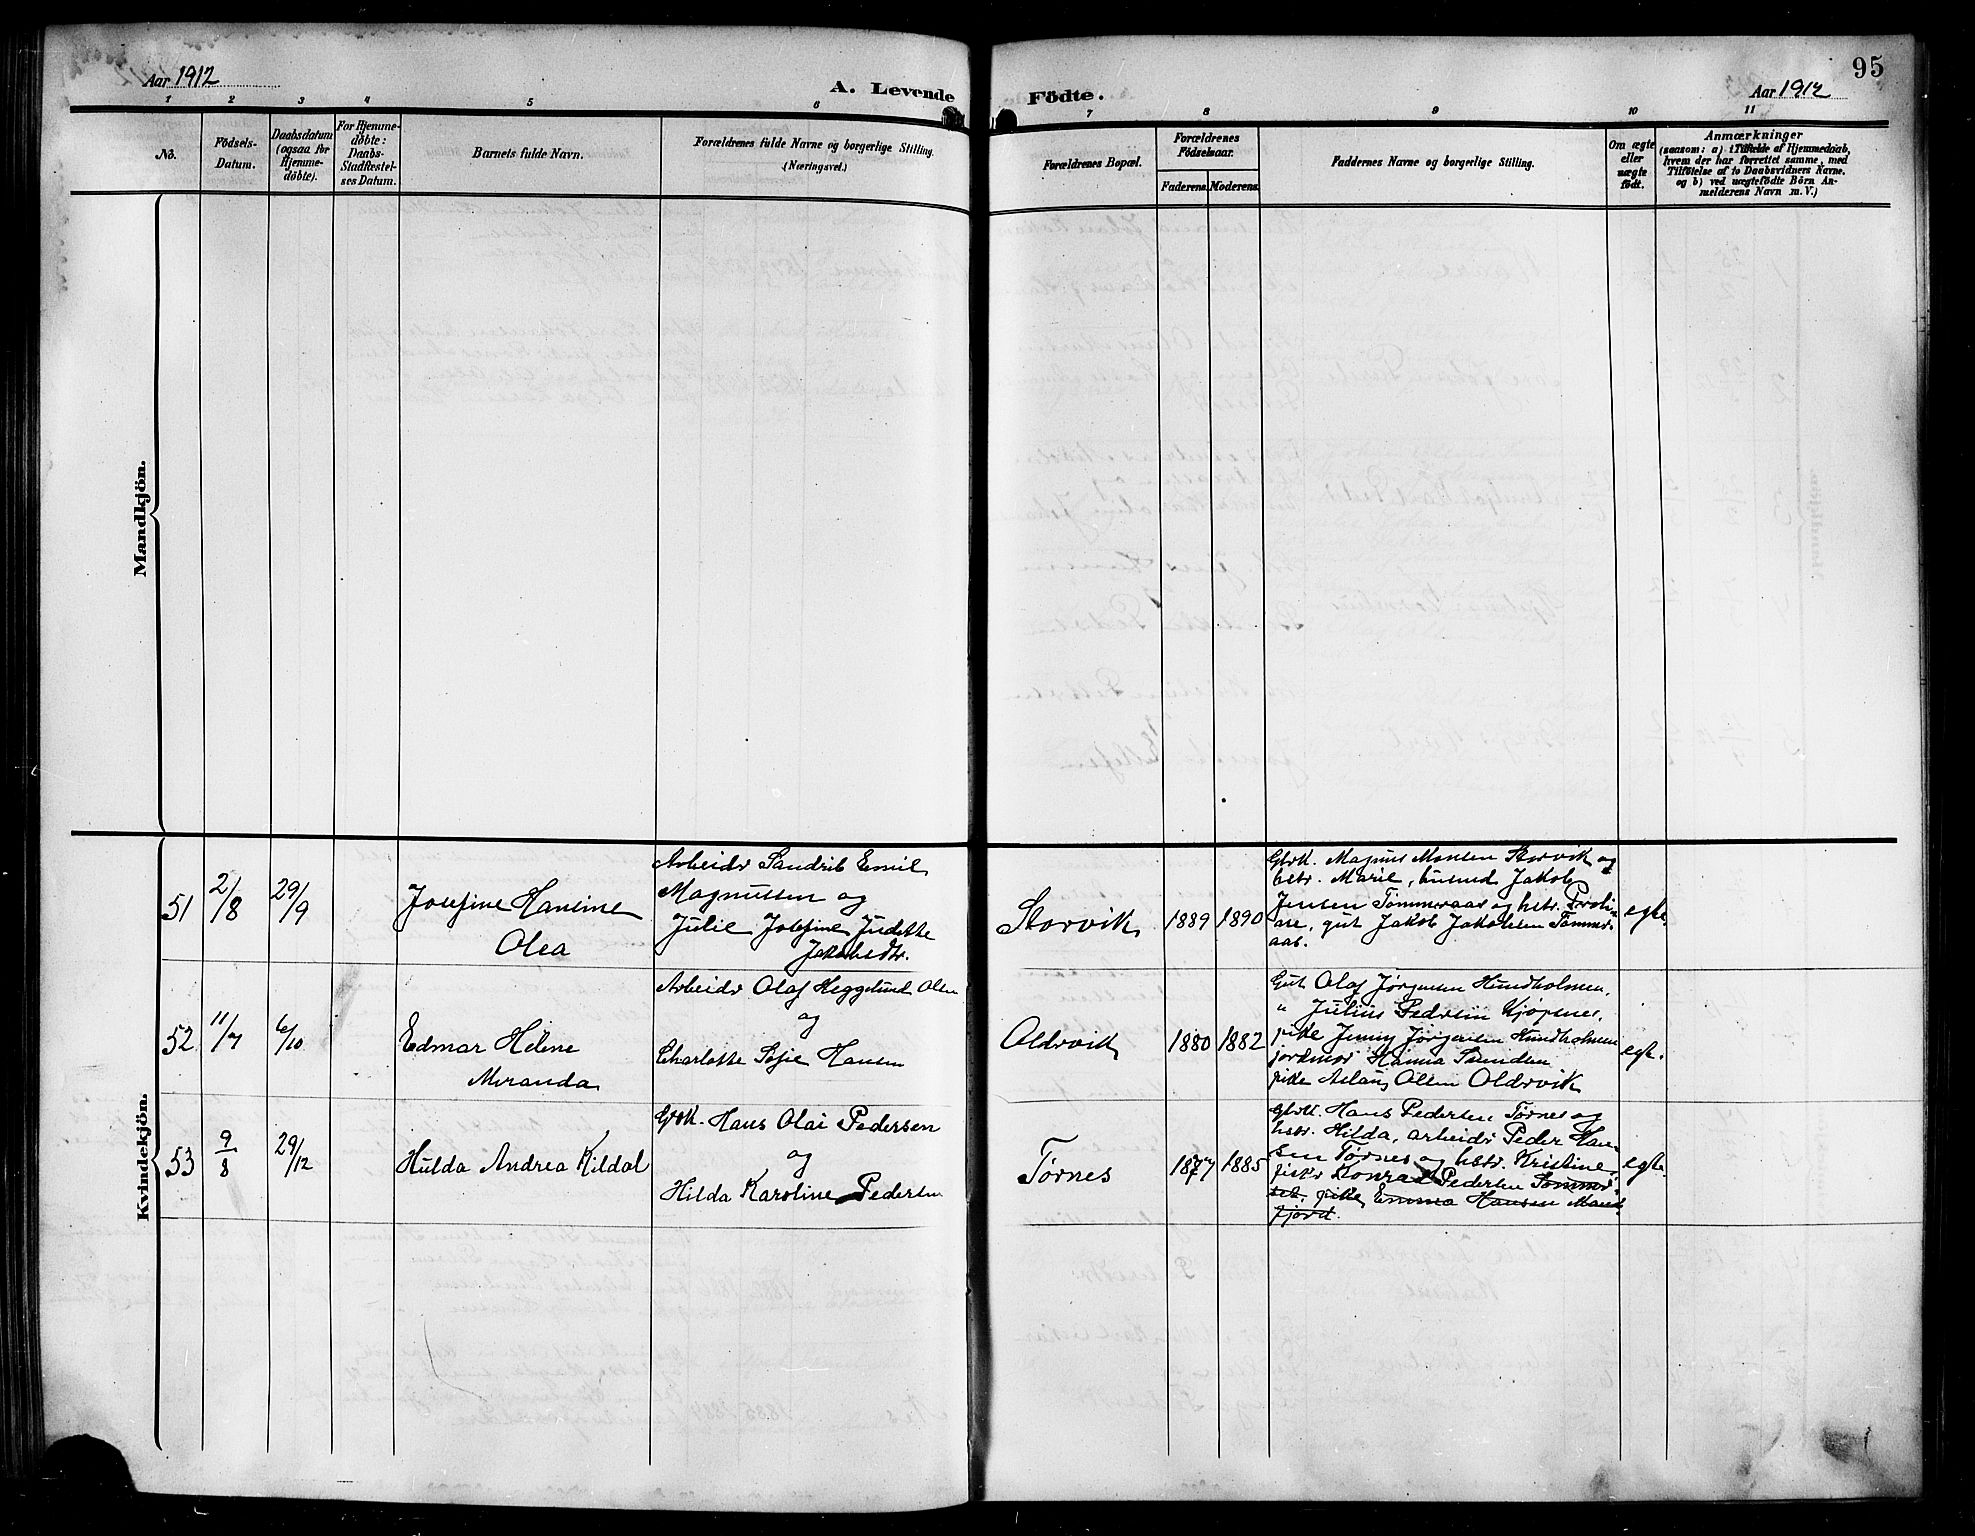 95
Aar 1912
A. Levende Födte.
Aar 1912
1 2 3 4 5 6 7 8 9 10 11
No.
Födsels-
Datum.
Daabsdatum
(ogsaa for
Hjemme-
döbte).
For Hjemme-
döbte:
Daabs-
Stadfæstel-
ses Datum.
Barnets fulde Navn.
Forældrenes fulde Navne og borgerlige Stilling.
(Næringsvei.)
Forældrenes Bopæl.
Forældrenes
Födselsaar.
Faderens. Moderens.
Faddernes Navne og borgerlige Stilling.
Om ægte
eller
uægte
födt.
Anmærkninger
(saasom: a) i Tilfælde af Hjemmedaab,
hvem der har forrettet samme, med
Tilföielse af to Daabsvidners Navne.
og b) ved uægtefödte Börn An-
melderens Navn m. V.)
Mandkjön.
Kvindekjön.
51
2/8
29/9
Josefine Hansine
Olea
Arbeider Sandrik Emil
Magnussen og
Julie Josefine Judette
Jakobsdtr.
Storvik
1889
1890
Gbrk. Magnus Monsen Storvik og
hstr. Marie, husmd Jakob
Jensen Tømmeraas og hstr. Paroli-
ane, gut Jakob Jakobsen Tømmer-
aas.
egte.
52
11/7
6/10
Edmar Helene
Miranda
Arbeidr Olaf Heggelund Olsen
og
Charlotte Sofie Hansen
Oldrvik
1880
1882
Gut Olaf Jørgensen Hundholmen,
" Julius Pedersen Kjøpsnes,
pike Jenny Jørgensen Hundholmen
jordmor Hanna
pike Aslaug Olsen Oldrvik
egte.
53
9/8
29/12
Hulda Andrea Kildal
Gbrk. Hans Olai Pedersen
og
Hilda Karoline Pedersen
Tørnes
1877
1885
Gbrk. Hans Pedersen Tørnes og
hstr. Hilda, arbeidr Peder Han-
sen Tørnes og hstr. Kristine,
fiskr Konrad Pedersen Sommer-
set, pike Emma Hansen Mand-
fjord.
egte.